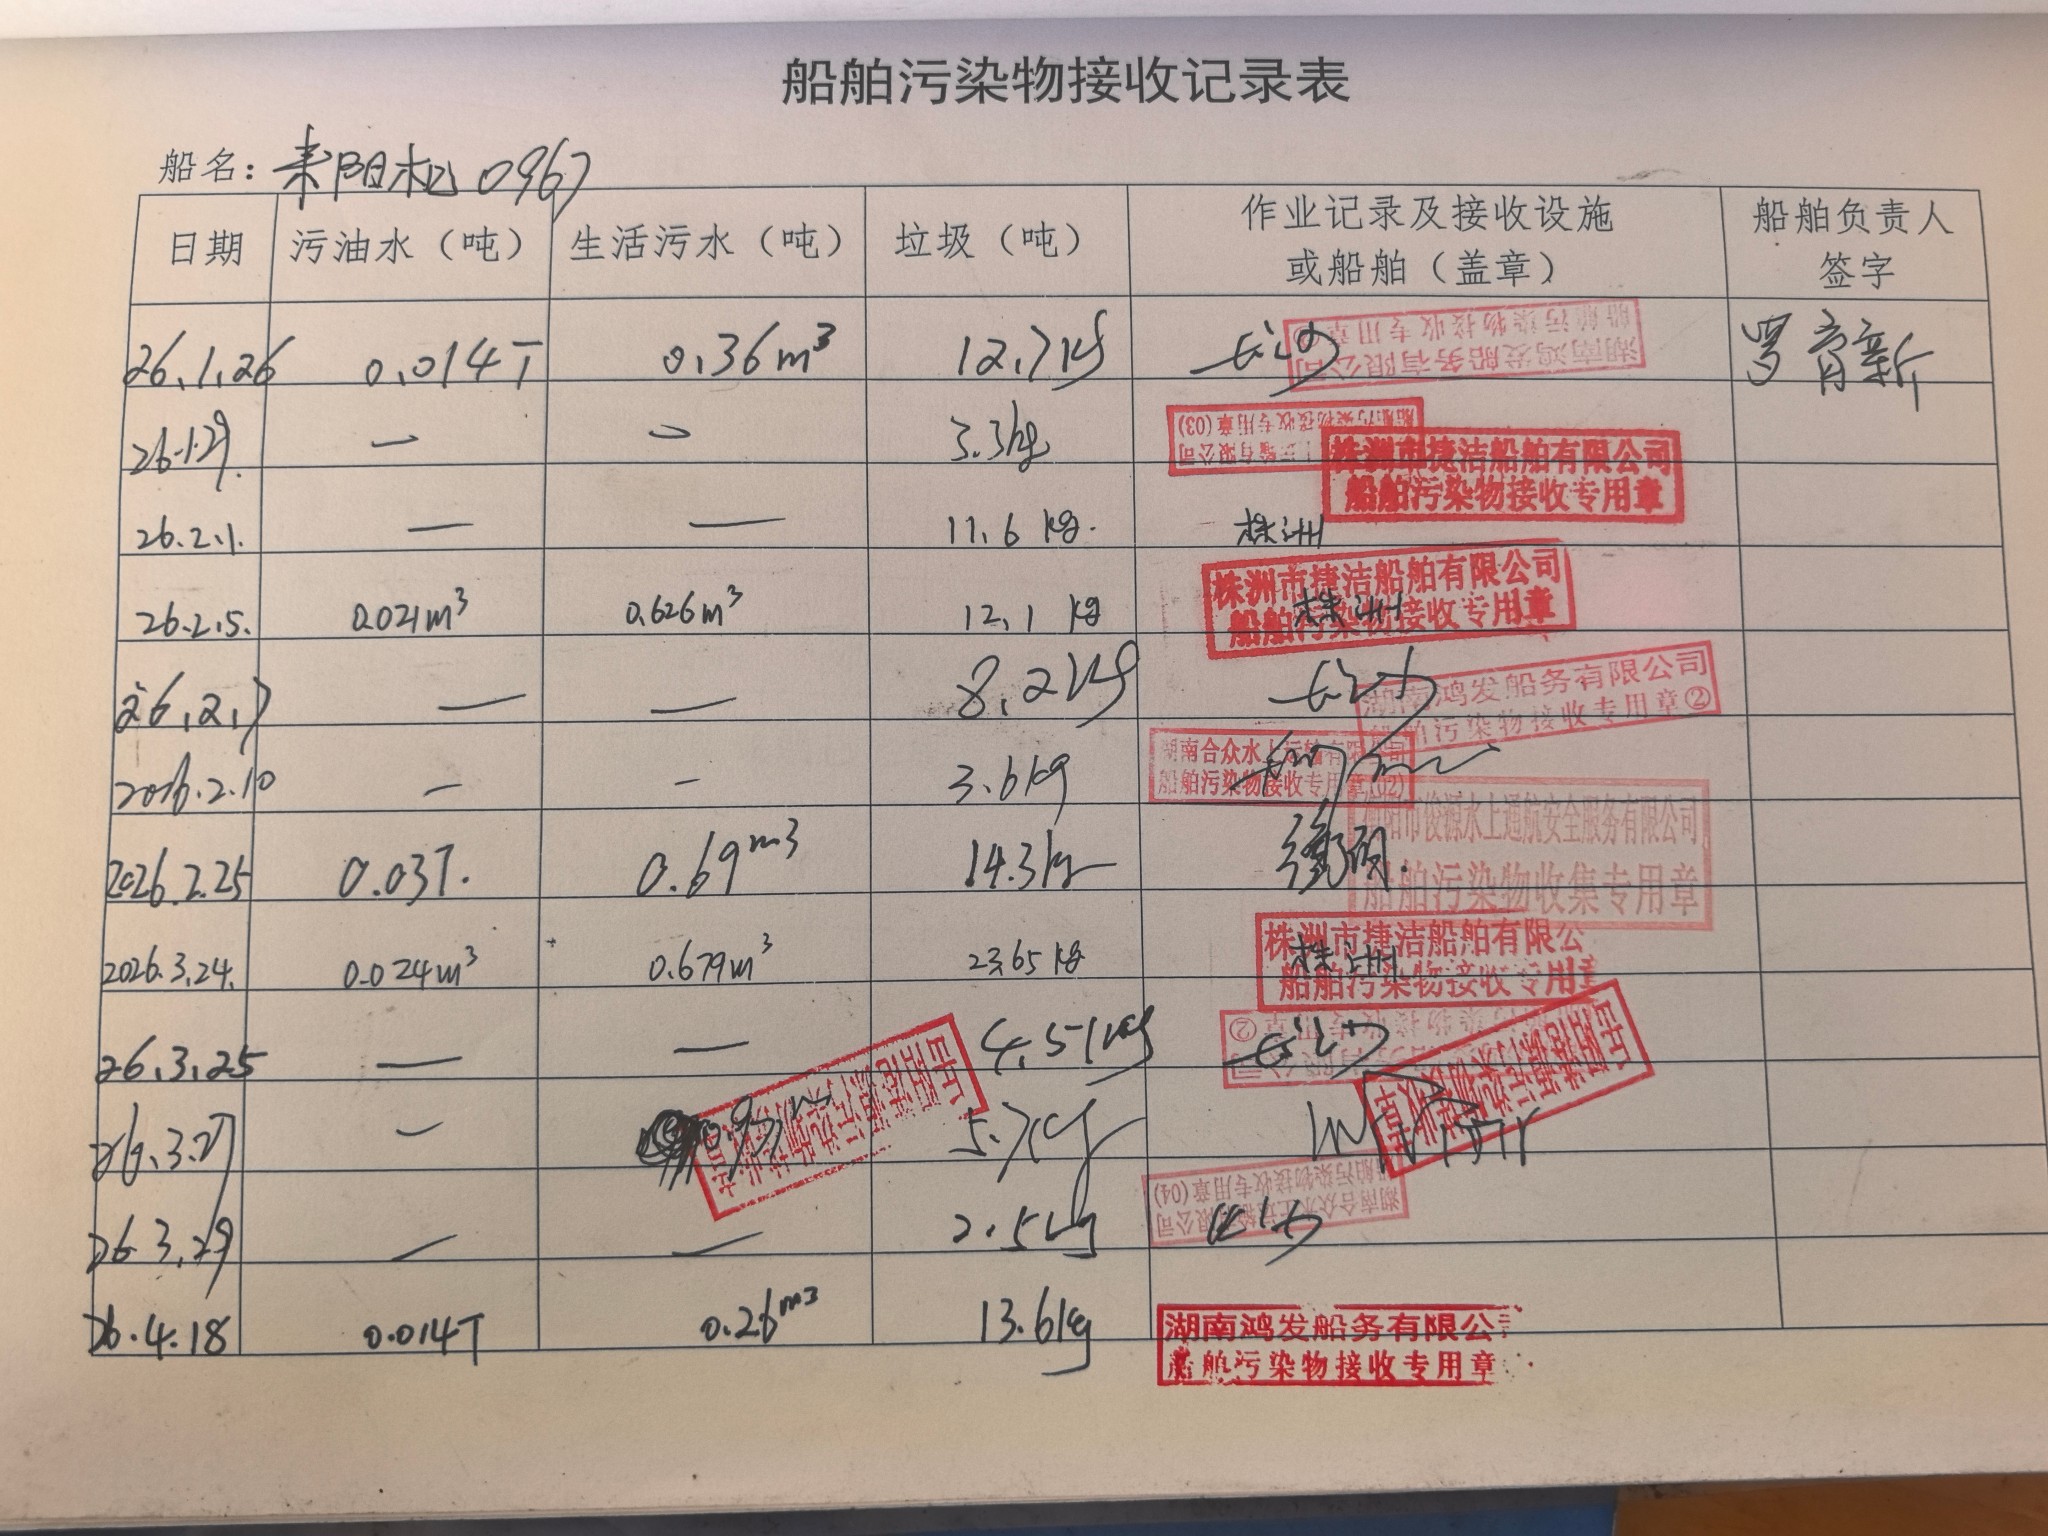 船舶污染物接收记录表
船名: 耒阳机0967
日期 污油水（吨） 生活污水（吨） 垃圾（吨） 作业记录及接收设施或船舶（盖章） 船舶负责人签字
26.1.26 0.014T 0.36m³ 12.7kg 长沙 湖南鸿发船务有限公司 船舶污染物接收专用章 罗育新
26.1.29. — — 3.3kg 船舶污染物接收专用章(03)
株洲市捷洁船舶有限公司
船舶污染物接收专用章
26.2.1. — — 11.6 kg. 株洲
26.2.5. 0.021m³ 0.626m³ 12.1 kg 株洲
株洲市捷洁船舶有限公司
船舶污染物接收专用章
26.2.7 — — 8.2kg 长沙
湖南鸿发船务有限公司
船舶污染物接收专用章②
2026.2.10 — — 3.6kg
湖南合众水上运输有限公司
船舶污染物接收专用章(02)
2026.2.25 0.03T. 0.69m³ 14.3kg 衡阳.
衡阳市俊源水上通航安全服务有限公司
船舶污染物收集专用章
2026.3.24. 0.024m³ 0.679m³ 23.65kg 株洲
株洲市捷洁船舶有限公
船舶污染物接收专用章
26.3.25 — — 4.51kg 长沙
26.3.27 — 5.7kg
26.3.29 — — 2.5kg
湖南合众水上运输有限公司
船舶污染物接收专用章(04)
26.4.18 0.014T 0.26m³ 13.6kg
湖南鸿发船务有限公
船舶污染物接收专用章